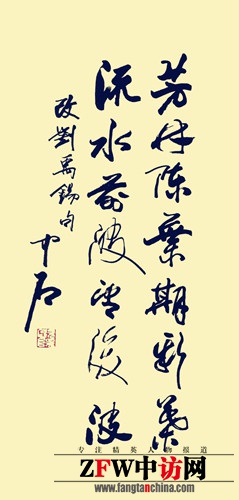 芳林陳葉期新葉
流水前波望後波
改劉禹錫句
中石
专注精英人物报道
ZFW中访网
www.fangtanchina.com